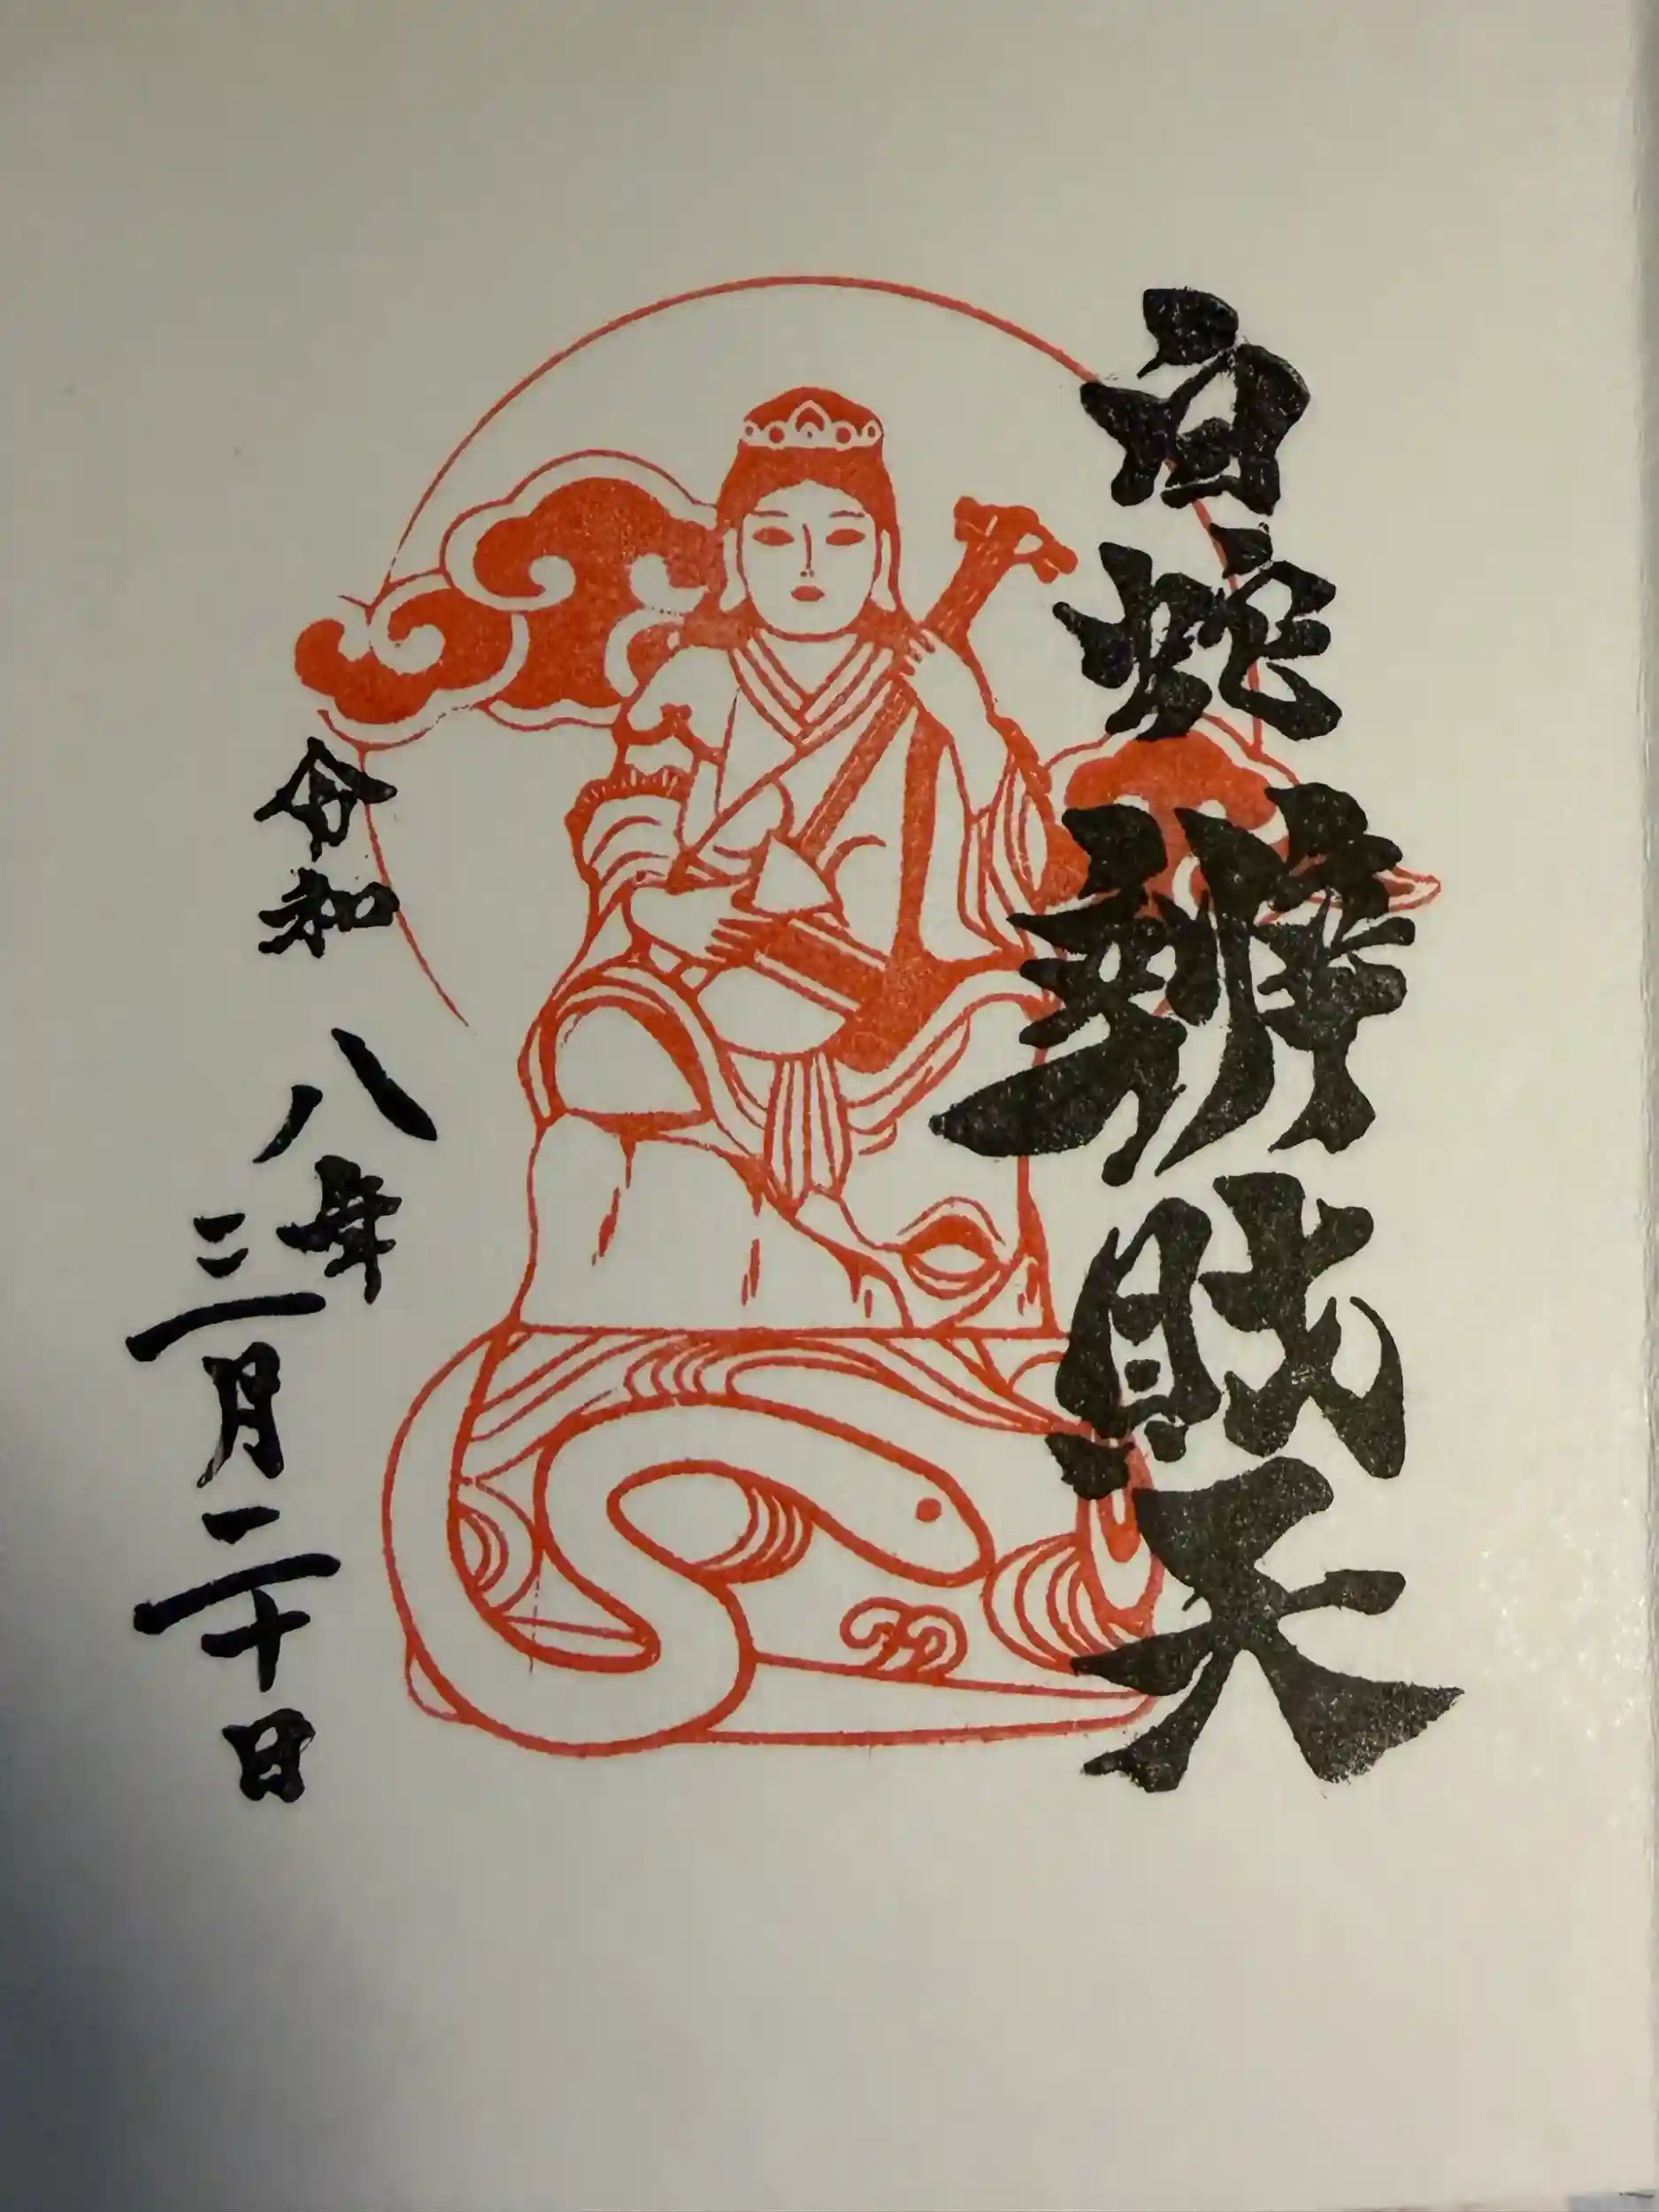 白蛇辨財天
令和八年
三月二十日